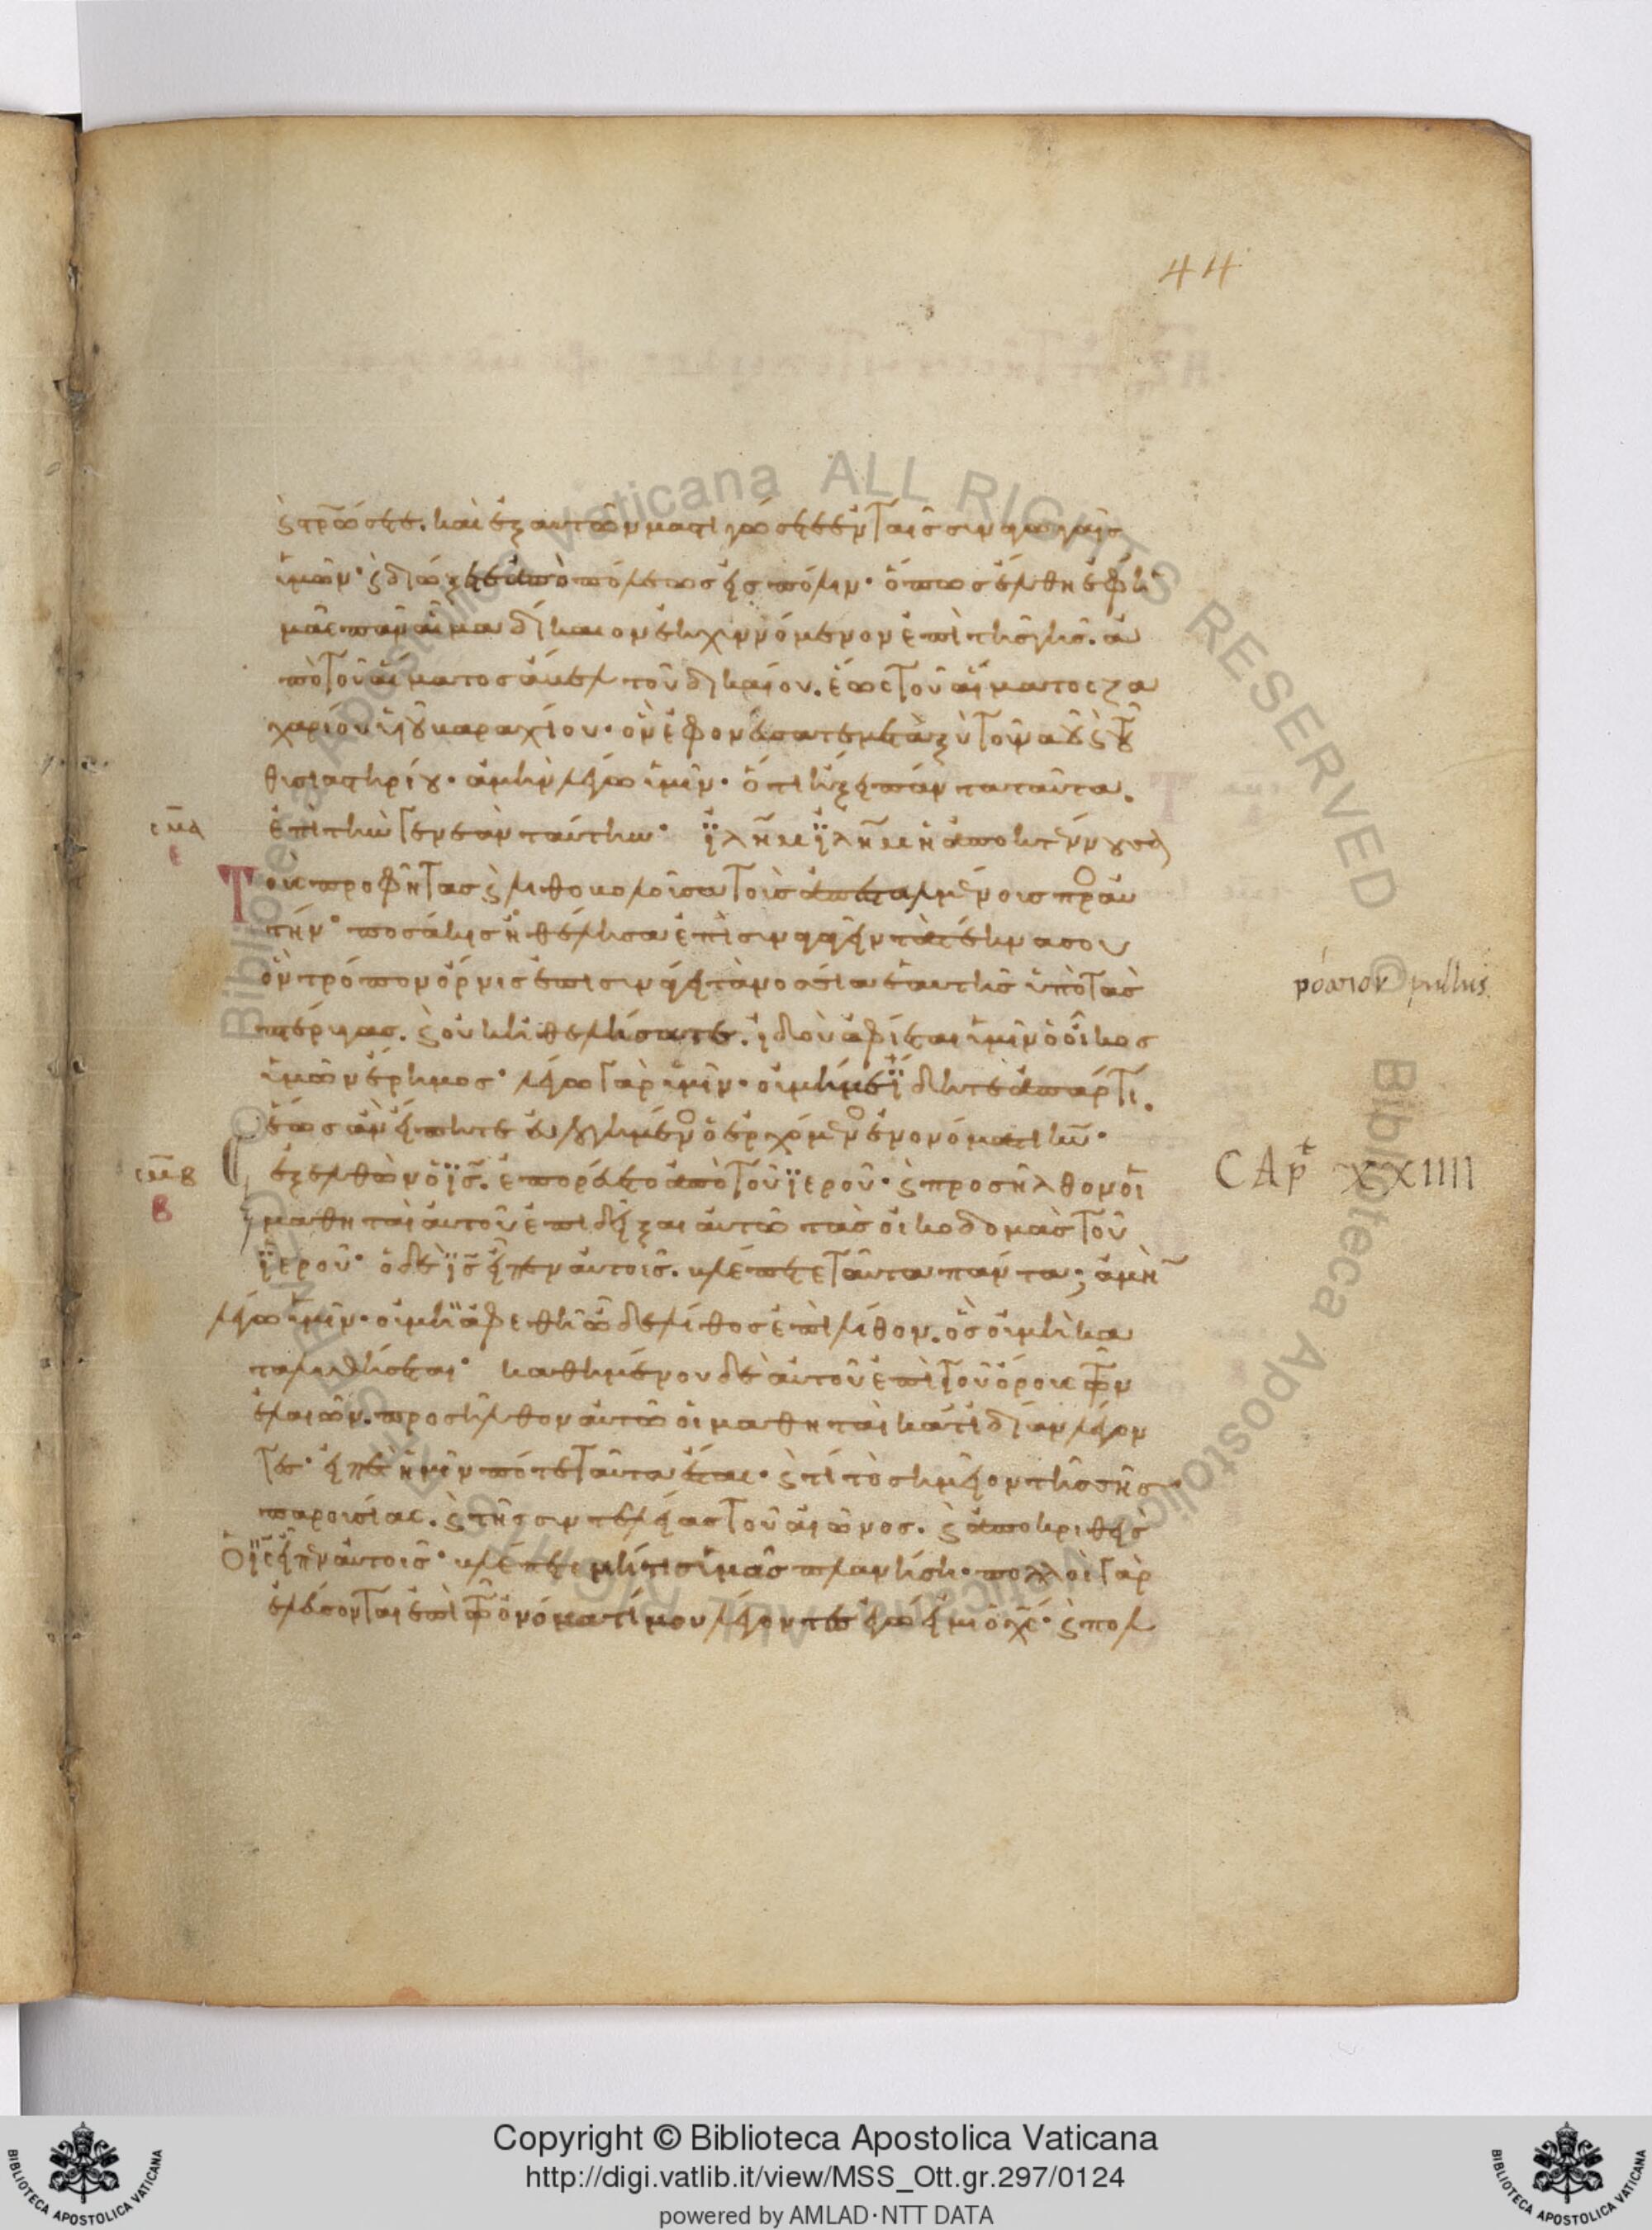 44
ϛ στρώσετε. καὶ ἐξ αυτῶν μαστιγώσετε ἐν ταῖς συναγωγαῖς
ὑμῶν· ϛ διώξετε ἀπὸ πόλεως εἰς πόλιν· ὅπως ἔλθη ἐφ ὑ
μᾶς πᾶν αἷμα δίκαιον ἐκχυννόμενον ἐπὶ τῆς γῆς. ἀ
πὸ τοῦ αἵματος ἄβελ τοῦ δικαίου. ἕως τοῦ αἵματος ζα
χαρίου υἱοῦ βαραχίου· ὃν ἐφονεύσατε μεταξὺ τοῦ ναοῦ ϛ τοῦ
θυσιαστηρίου. ἀμὴν λέγω ὑμῖν· ὅτι ἥξει πάντα ταῦτα.
ἐπὶ τὴν γενεὰν ταύτην· ϊλημ ϊλημ ἡ ἀποκτέννουσα
Τοὺς προφήτας ϛ λιθοβολοῦσα τοὺς ἀπεσταλμένους πρὸς αυ
τήν· ποσάκις ἠθέλησα ἐπισυναγαγεῖν τὰ τέκνα σου
ὃν τρόπον ὄρνις ἐπισυνάγει τὰ νοσσία ἑαυτῆς ὑπὸ τὰς
πτέρυγας. ϛ οὐκ ἠθελήσατε. ἰδοὺ ἀφίεται ὑμῖν ὁ οἶκος
ὑμῶν ἔρημος· λέγω γὰρ ὑμῖν· οὐ μή με ϊδητε ἀπάρτι.
ἕως ἂν εἴπητε εὐλογημένος ὁ ἐρχόμενος ἐν ονόματι κυ·
ἐξελθὼν ὁ ϊς. ἐπορεύετο ἀπὸ τοῦ ϊεροῦ· ϛ προσῆλθον οἱ
μαθηταὶ αὐτοῦ ἐπιδεῖξαι αὐτῶ τὰς οἰκοδομὰς τοῦ
ϊεροῦ· ὁ δὲ ϊς εἶπεν αὐτοῖς. βλέπετε ταῦτα πάντα; ἀμὴν
λέγω ὑμῖν· οὐ μὴ ἀφεθῆ ὧδε λίθος ἐπὶ λίθον. ὃς οὐ μὴ κα
ταλυθήσεται· καθημένου δὲ αὐτοῦ ἐπὶ τοῦ ὄρους τῶν
ἐλαιῶν. προσῆλθον αὐτῶ οἱ μαθηταὶ κατ ἰδίαν λέγον
τες· εἰπὲ ἡμῖν πότε ταῦτα ἔσται· ϛ τί τὸ σημεῖον τῆς σῆς
παρουσίας. ϛ τῆς συντελείας τοῦ αἰῶνος. ϛ ἀποκριθεὶς
Ὁ ϊς εἶπεν αὐτοῖς· βλέπετε μή τις ὑμᾶς πλανήση· πολλοὶ γὰρ
ἐλεύσονται ἐπὶ τῶ ὀνόματί μου λέγοντες ἐγώ εἰμι ὁ χς· ϛ πολ
νόσσιον pullus
CAP XXIIII
Copyright © Biblioteca Apostolica Vaticana
http://digi.vatlib.it/view/MSS_Ott.gr.297/0124
powered by AMLAD·NTT DATA
BIBLIOTECA APOSTOLICA VATICANA
BIBLIOTECA APOSTOLICA VATICANA